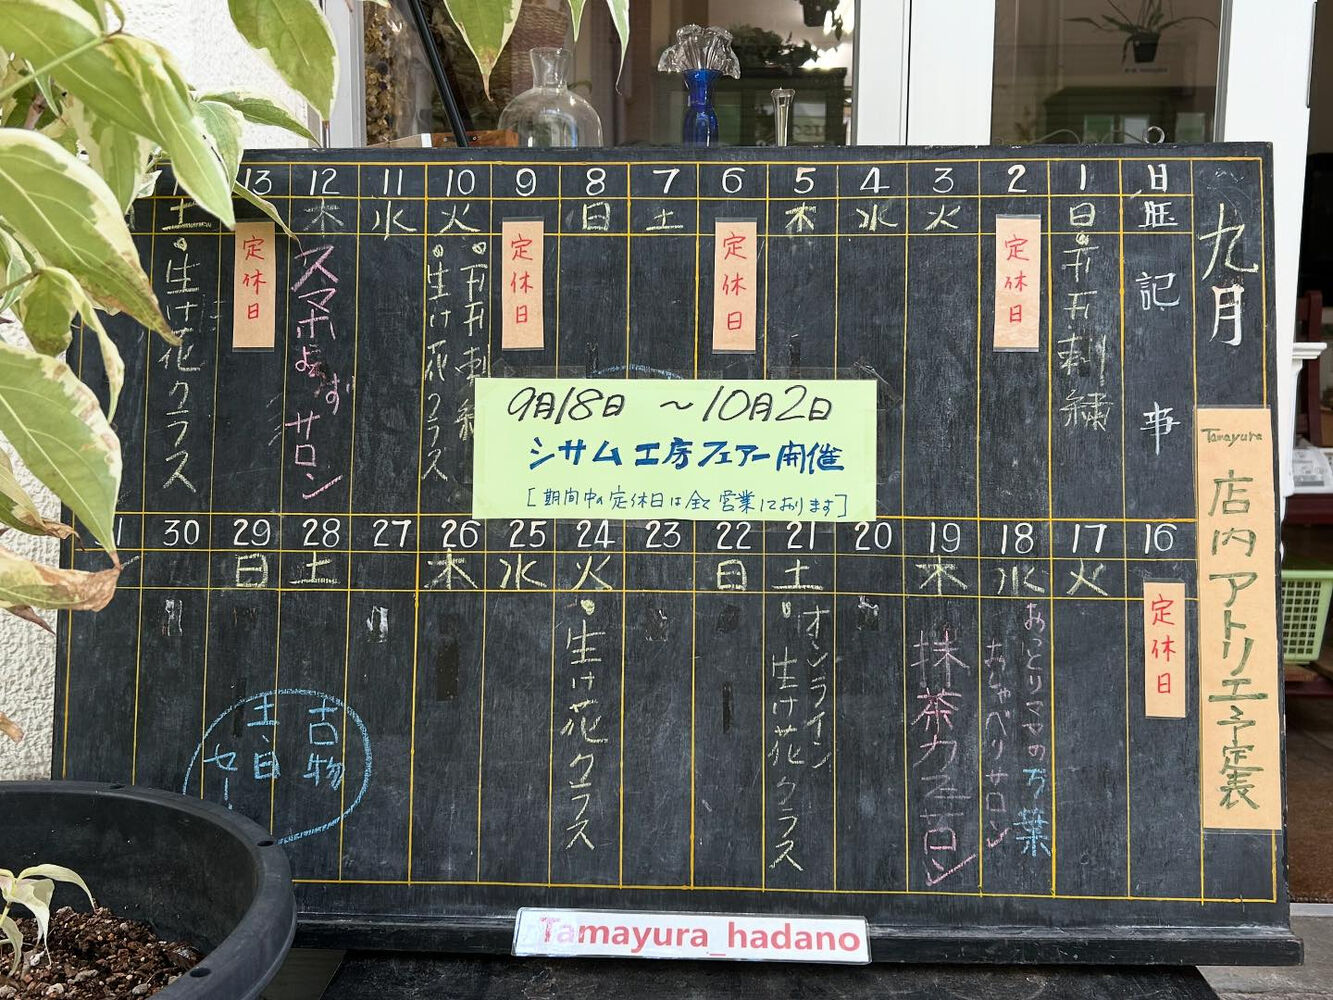 九月
Tamayura
店内アトリエ予定表
日
曜
記事
1
日
・刺繍
2
定休日
3
火
4
水
5
木
6
定休日
7
土
8
日
9
定休日
10
火
刺繍
・生け花クラス
11
水
12
木
スマホよろず
サロン
13
定休日
土
・生け花クラス
9月18日 〜10月2日
シサム工房フェアー開催
[期間中の定休日は全て営業しております]
16
定休日
17
火
18
水
おっとりママの万葉
おしゃべりサロン
19
木
抹茶カフェサロン
20
21
土
・オンライン
生け花クラス
22
日
23
24
火
・生け花クラス
25
水
26
木
27
28
土
29
日
30
古物
土、日
セー
Tamayura_hadano